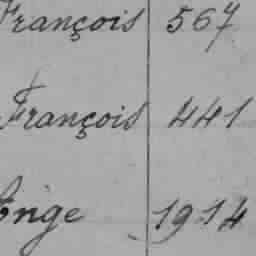 François 567
François 441
Enge 1914